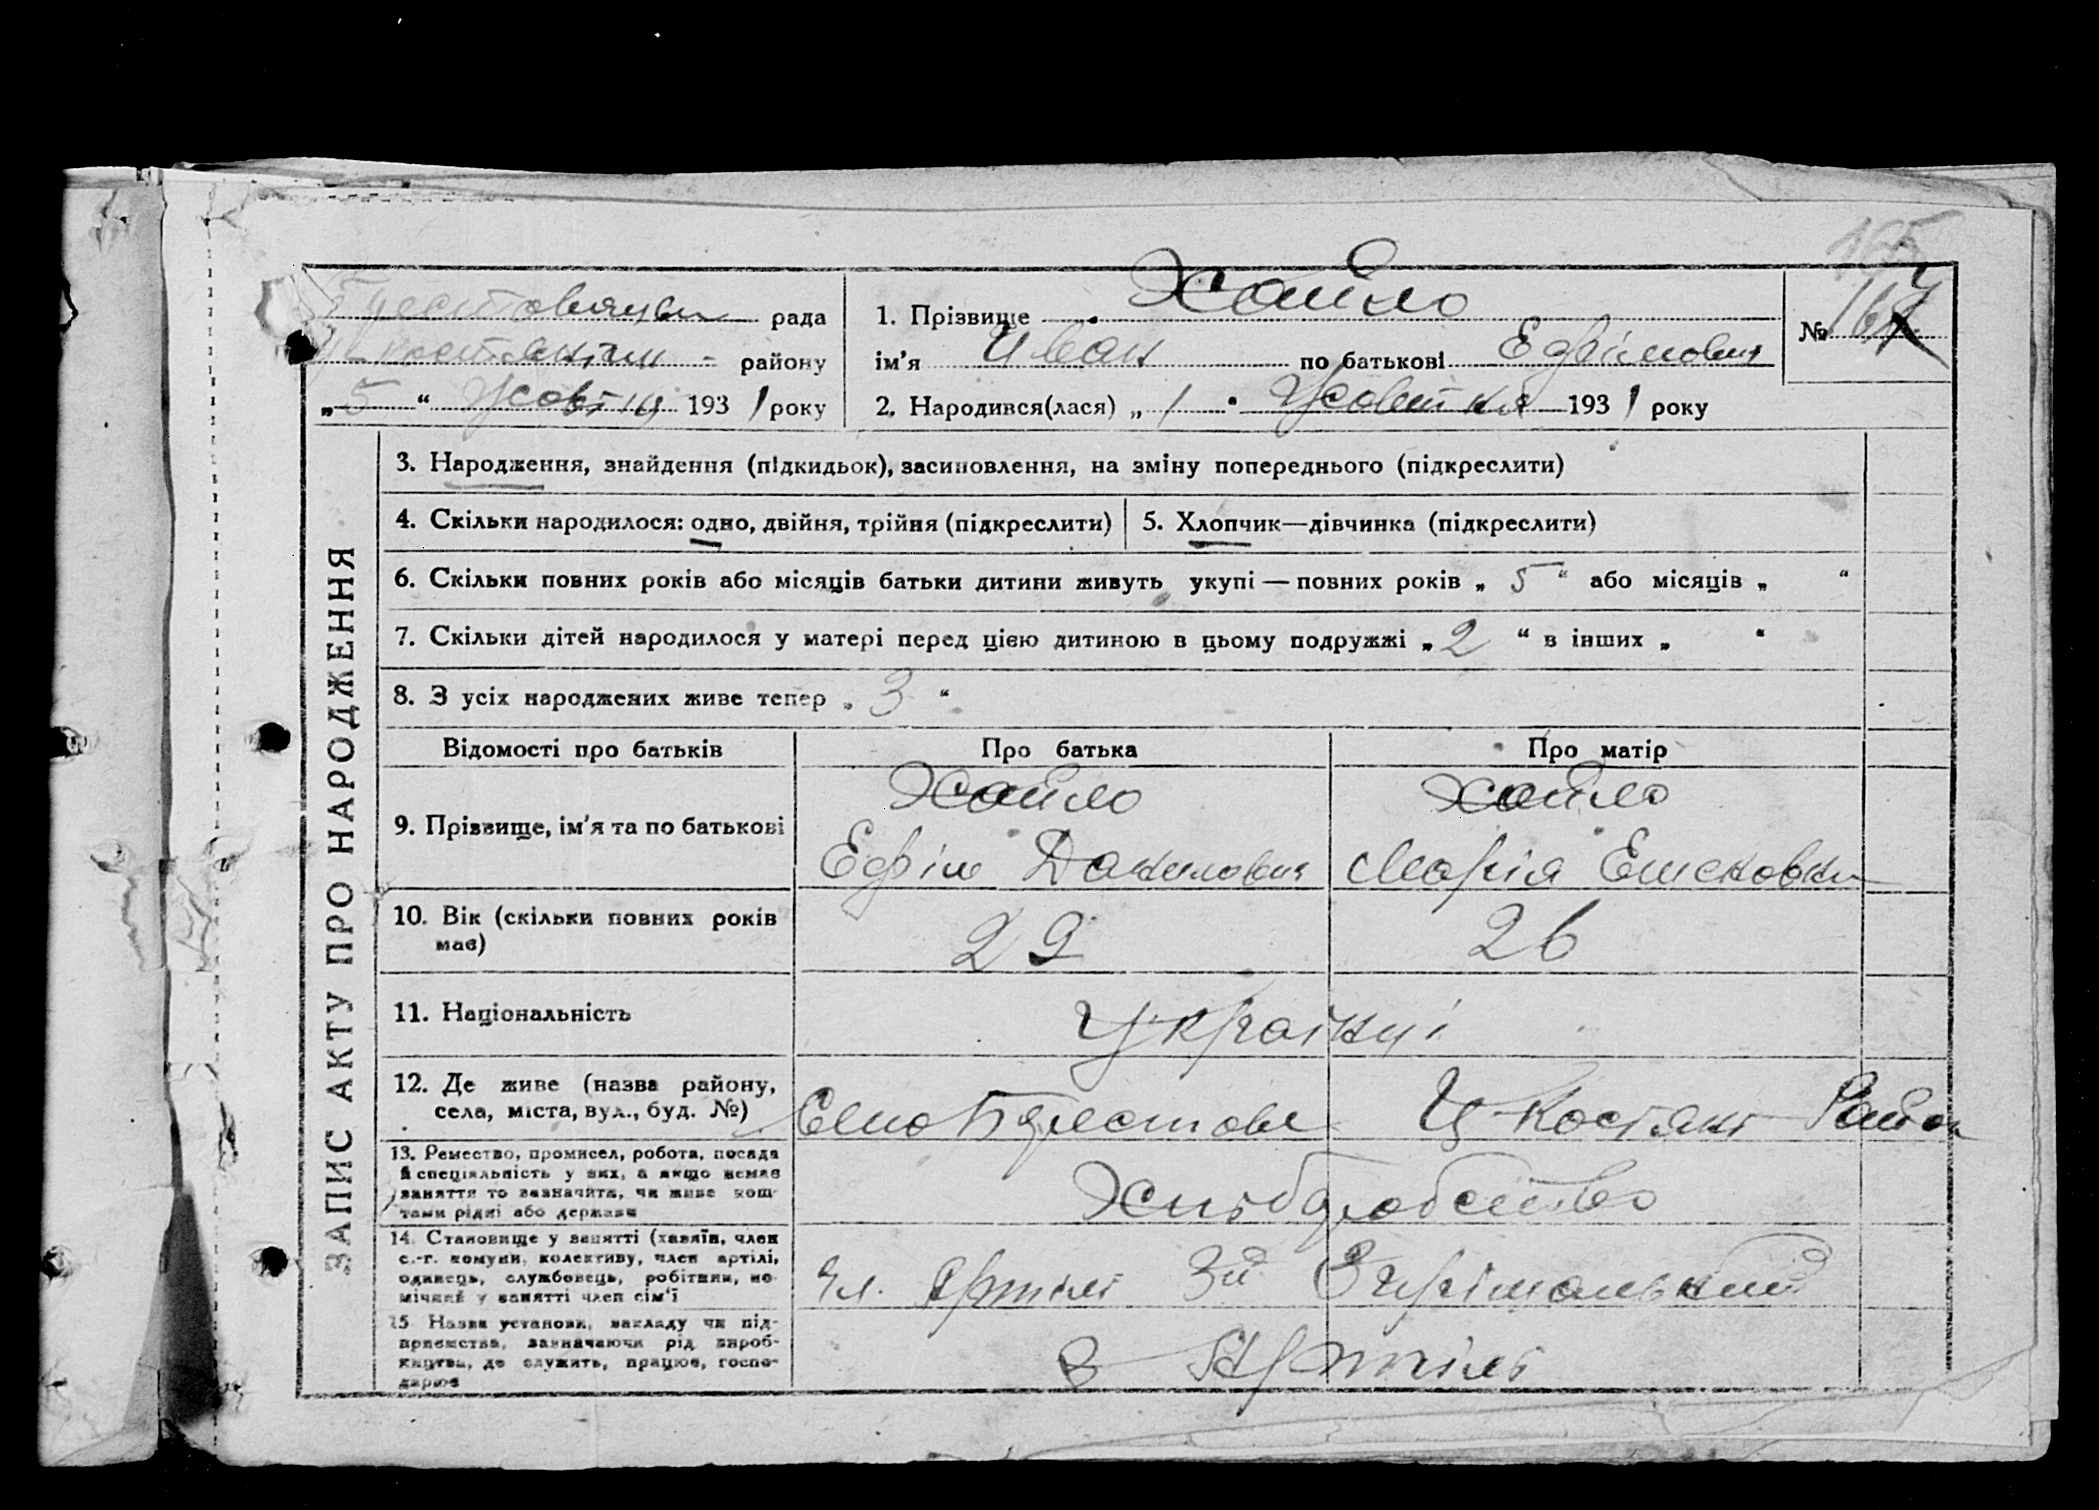 165
рада
1. Прізвище Хайло
№ 167
району
ім'я Иван по батькові Ефімович
„ 5 “ Жовтня 1931 року
2. Народився(лася) „ 1 “ Жовтня 1931 року
ЗАПИС АКТУ ПРО НАРОДЖЕННЯ
3. Народження, знайдення (підкидьок), засиновлення, на зміну попереднього (підкреслити)
4. Скільки народилося: одно, двійня, трійня (підкреслити)
5. Хлопчик—дівчинка (підкреслити)
6. Скільки повних років або місяців батьки дитини живуть укупі — повних років „ 5 “ або місяців „ “
7. Скільки дітей народилося у матері перед цією дитиною в цьому подружжі „ 2 “ в інших „ “
8. З усіх народжених живе тепер „ 3 “
Відомості про батьків
Про батька
Про матір
9. Прізвище, ім'я та по батькові
Хайло
Ефім Данилович
Хайло
Марія
10. Вік (скільки повних років
має)
29
26
11. Національність
Українці
12. Де живе (назва району,
села, міста, вул., буд. №)
Село Ц-Костянт Район
13. Ремество, промисел, робота, посада
й спеціяльність у них, а якщо немає
заняття то зазначити, чи живе кош-
тами рідні або держави
Хліборобство
14. Становище у занятті (хазяїн, член
с.-г. комуни, колективу, член артілі,
одинець, службовець, робітник, по-
мічний у занятті член сім'ї
Чл. Артілі
15 Назва установи, закладу чи під-
приємства, зазначаючи рід вироб-
ництва, де служить, працює, госпо-
дарює
В Артілі